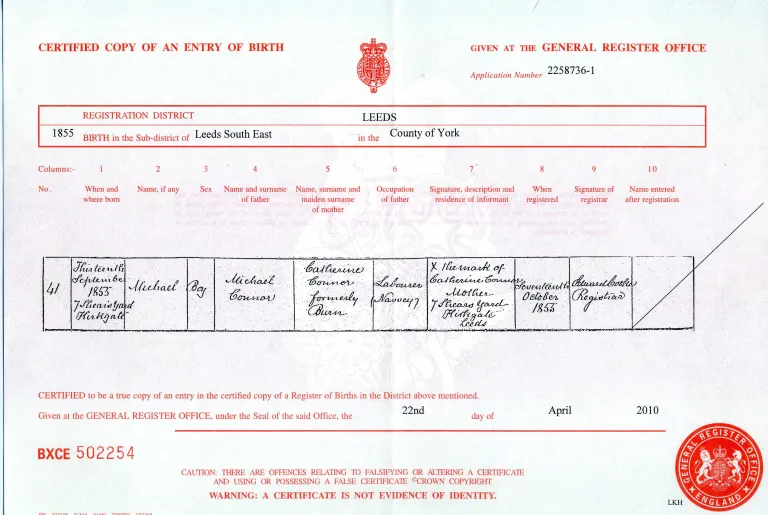 CERTIFIED COPY OF AN ENTRY OF BIRTH
GIVEN AT THE GENERAL REGISTER OFFICE
Application Number 2258736-1
REGISTRATION DISTRICT LEEDS
1855 BIRTH in the Sub-district of Leeds South East in the County of York
Columns:- 1 2 3 4 5 6 7 8 9 10
No. When and where born
Name, if any
Sex
Name and surname of father
Name, surname and maiden surname of mother
Occupation of father
Signature, description and residence of informant
When registered
Signature of registrar
Name entered after registration
41
Thirteenth
September
1855
7 Shears Yard
Kirkgate
Michael
Boy
Michael
Connor
Catherine
Connor
formerly
Burn
Labourer
(Navvey)
X The mark of
Catherine Connor
Mother
7 Shears Yard
Kirkgate
Leeds
Seventeenth
October
1855
Edward
Registrar
CERTIFIED to be a true copy of an entry in the certified copy of a Register of Births in the District above mentioned.
Given at the GENERAL REGISTER OFFICE, under the Seal of the said Office, the 22nd day of April 2010
BXCE 502254
CAUTION: THERE ARE OFFENCES RELATING TO FALSIFYING OR ALTERING A CERTIFICATE
AND USING OR POSSESSING A FALSE CERTIFICATE ©CROWN COPYRIGHT
WARNING: A CERTIFICATE IS NOT EVIDENCE OF IDENTITY.
GENERAL REGISTER OFFICE
ENGLAND
LKH